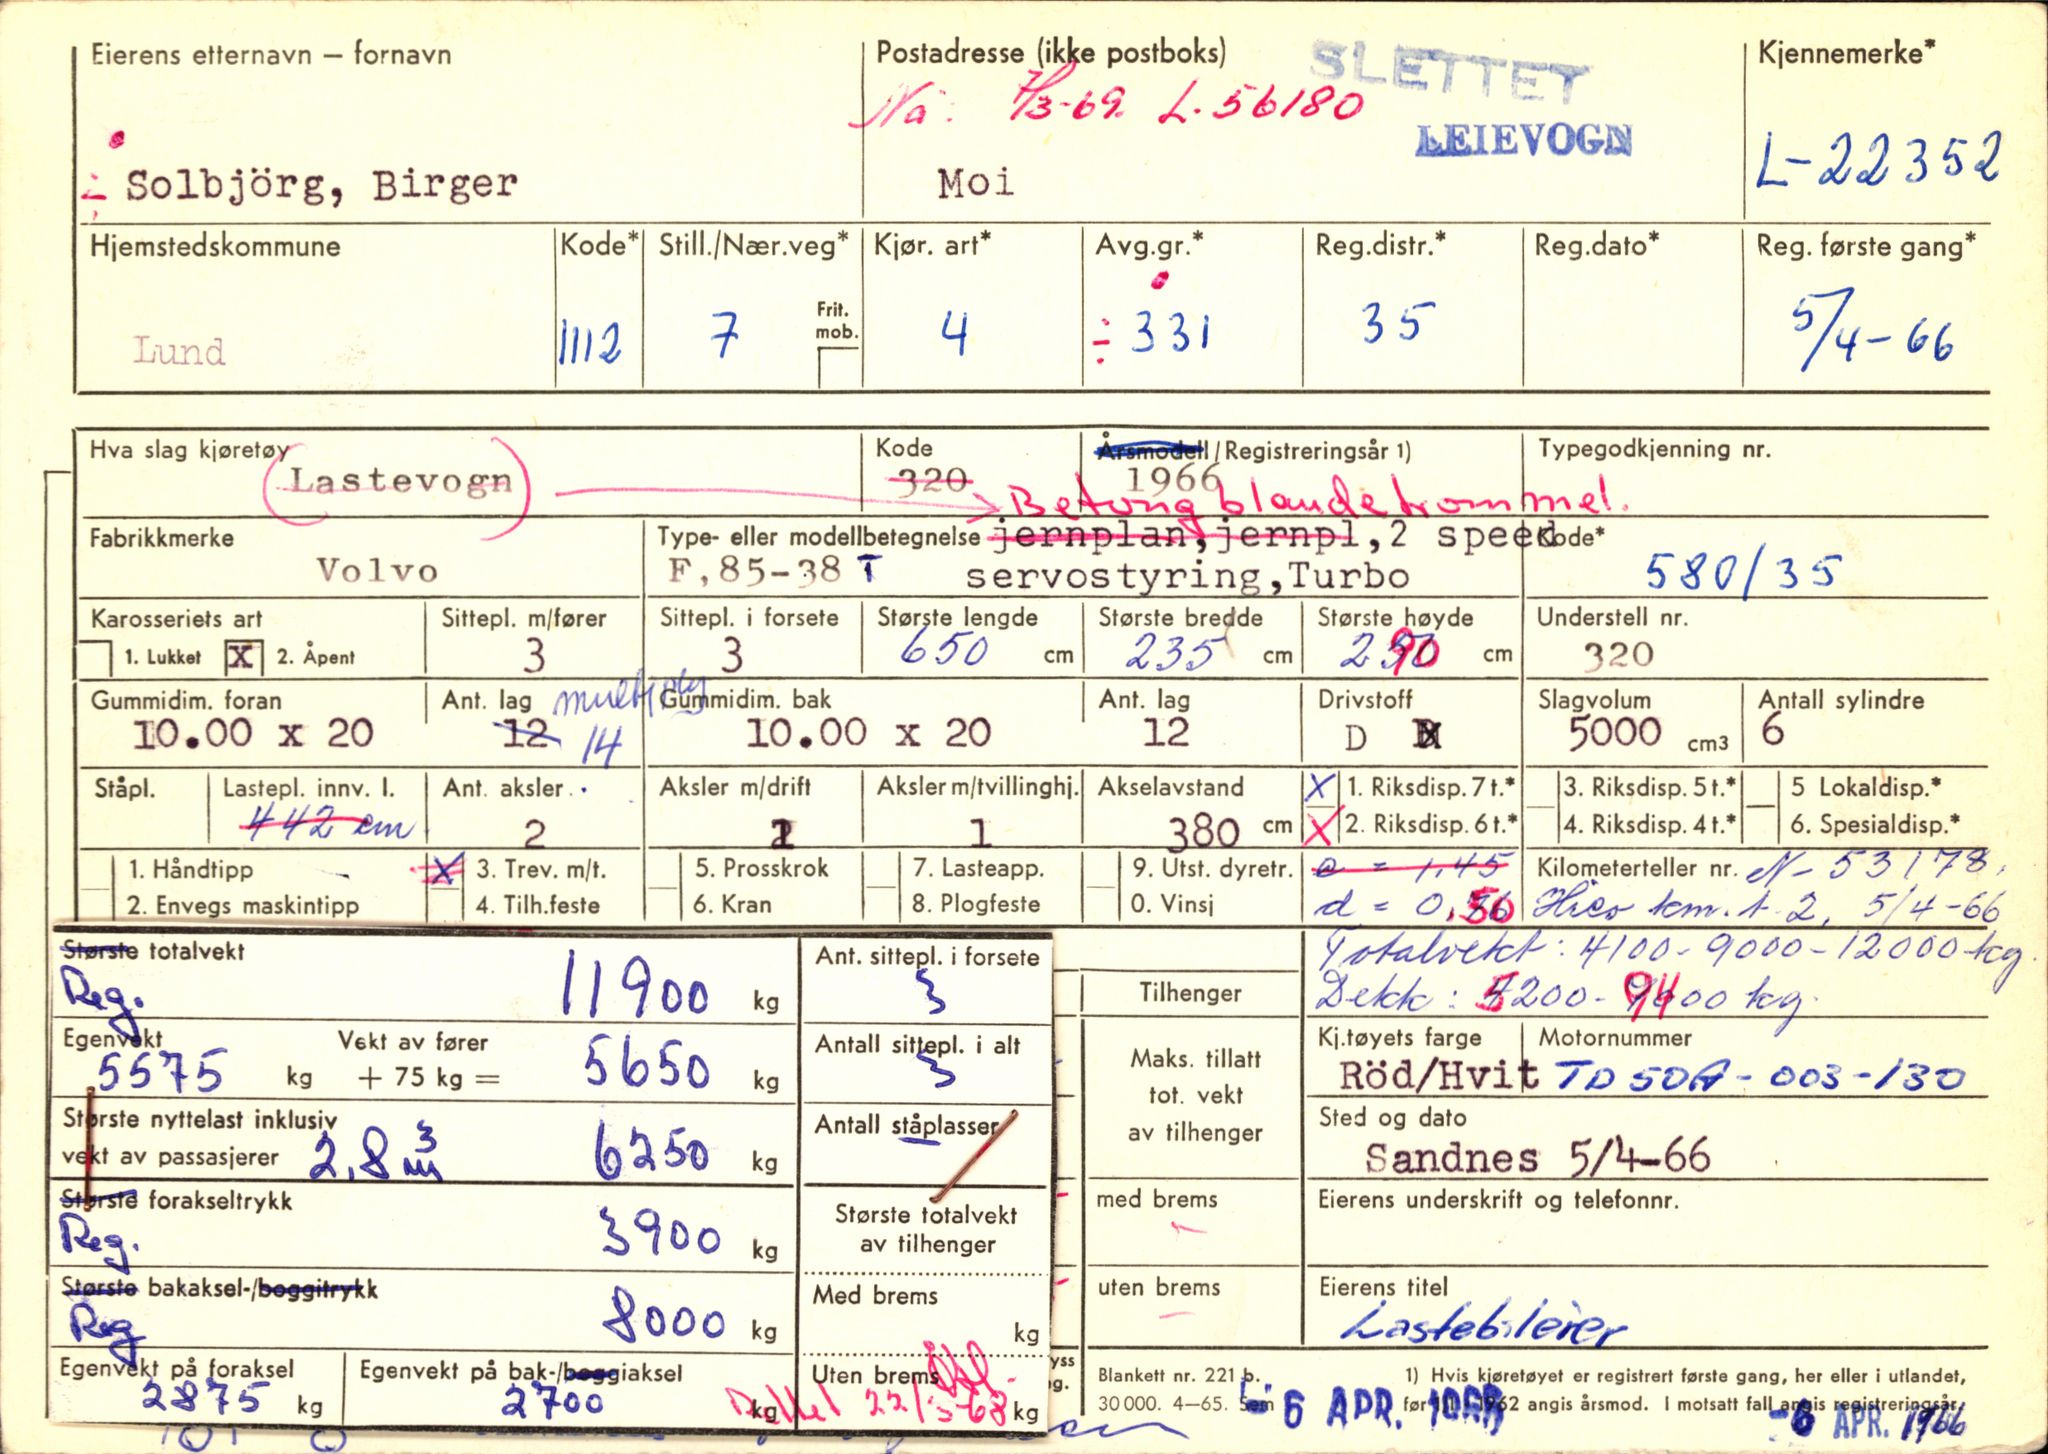 Eierens etternavn – fornavn
Postadresse (ikke postboks)
SLETTET
Kjennemerke*
Nå: 7/3-69. L-56180
LEIEVOGN
Solbjörg, Birger
Moi
L-22352
Hjemstedskommune
Kode*
Still./Nær.veg*
Kjør. art*
Avg.gr.*
Reg.distr.*
Reg.dato*
Reg. første gang*
Lund
1112
7
Frit. mob.
4
÷ 331
35
5/4-66
Hva slag kjøretøy
Kode
Årsmodell/Registreringsår 1)
Typegodkjenning nr.
(Lastevogn)
320
1966
Betongblandetrommel.
Fabrikkmerke
Type- eller modellbetegnelse
jernplan, jernpl, 2 speed
Kode*
Volvo
F, 85-38 T
servostyring, Turbo
580/35
Karosseriets art
Sittepl. m/fører
Sittepl. i forsete
Største lengde
Største bredde
Største høyde
Understell nr.
1. Lukket
X
2. Åpent
3
3
650 cm
235 cm
290 cm
320
Gummidim. foran
Ant. lag
Gummidim. bak
Ant. lag
Drivstoff
Slagvolum
Antall sylindre
10.00 x 20
12 14
10.00 x 20
12
D
5000 cm3
6
Ståpl.
Lastepl. innv. l.
Ant. aksler
Aksler m/drift
Aksler m/tvillinghj.
Akselavstand
X 1. Riksdisp. 7 t.*
3. Riksdisp. 5 t.*
5 Lokaldisp.*
442 cm
2
1
1
380 cm
X 2. Riksdisp. 6 t.*
4. Riksdisp. 4 t.*
6. Spesialdisp.*
1. Håndtipp
X 3. Trev. m/t.
5. Prosskrok
7. Lasteapp.
9. Utst. dyretr.
a = 1,45
Kilometerteller nr. N-53178,
2. Envegs maskintipp
4. Tilh.feste
6. Kran
8. Plogfeste
0. Vinsj
d = 0,50
Hico km.t. 2, 5/4-66
Største totalvekt
Reg.
11900 kg
Ant. sittepl. i forsete
3
Totalvekt: 4100-9000-12000 kg.
Tilhenger
Dekk: 5200-9400 kg.
Egenvekt
Vekt av fører
5575 kg + 75 kg = 5650 kg
Antall sittepl. i alt
3
Maks. tillatt
tot. vekt
av tilhenger
Kj.tøyets farge
Motornummer
Röd/Hvit
TD50A-003-130
Største nyttelast inklusiv
vekt av passasjerer
2,8 m3
6250 kg
Antall ståplasser
Sted og dato
Sandnes 5/4-66
Største forakseltrykk
Reg.
3900 kg
Største totalvekt
av tilhenger
med brems
Eierens underskrift og telefonnr.
Største bakaksel-/boggitrykk
Reg
8000 kg
Med brems
kg
uten brems
Eierens titel
Lastebileier
Egenvekt på foraksel
2875 kg
Egenvekt på bak-/boggiaksel
2700 kg
Uten brems
kg
22/3-68
Blankett nr. 221 b.
30 000. 4—65. Sem
1) Hvis kjøretøyet er registrert første gang, her eller i utlandet,
før 1/1 1962 angis årsmod. I motsatt fall angis registreringsår.
- 6 APR. 1966
- 6 APR. 1966